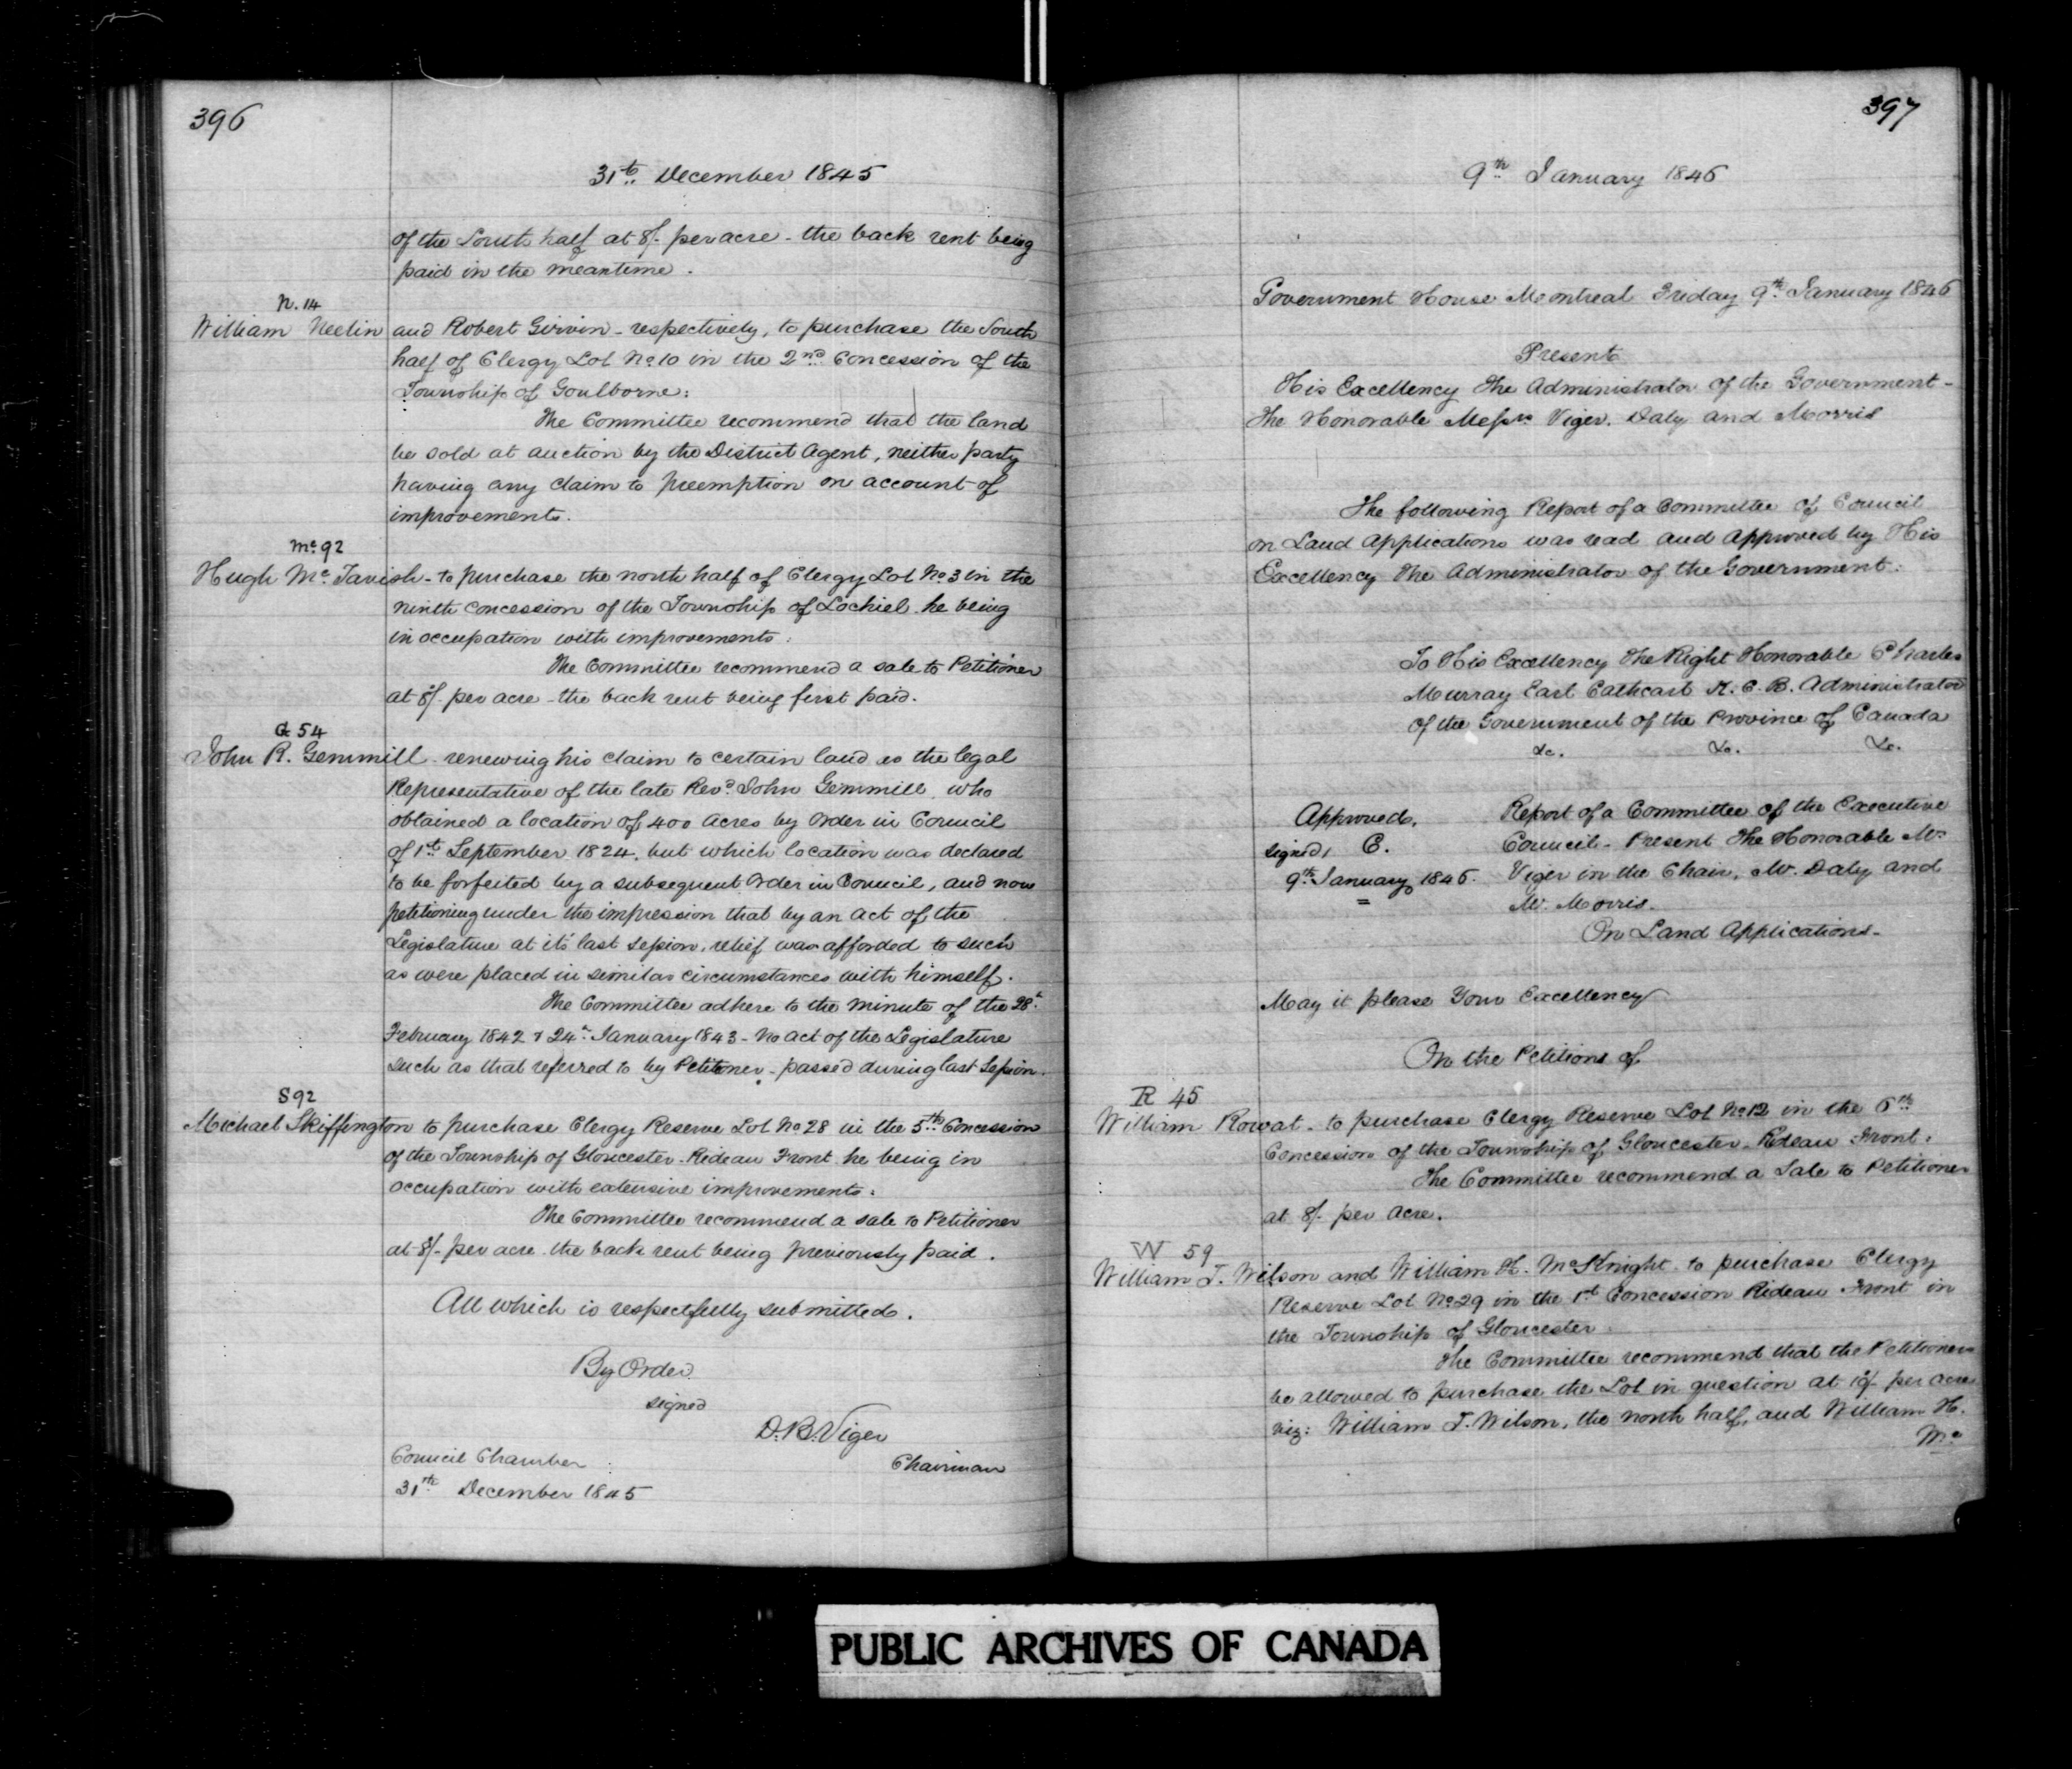 396
31th December 1845
of the South half at 8/- per acre - the back rent being
paid in the meantime.
N. 14
William Neelin and Robert Girvin - respectively, to purchase the South
half of Clergy Lot No 10 in the 2nd Concession of the
Township of Goulborne:
The Committee recommend that the land
be sold at auction by the District Agent, neither party
having any claim to preemption on account of
improvements.
Mc 92
Hugh McTavish - to purchase the north half of Clergy Lot No 3 in the
ninth concession of the Township of Lochiel he being
in occupation with improvements:
The Committee recommend a sale to Petitioner
at 8/- per acre - the back rent being first paid.
G 54
John R. Gemmill - renewing his claim to certain land as the legal
Representative of the late Revd John Gemmill who
obtained a location of 400 acres by Order in Council
of 1st September 1824, but which location was declared
to be forfeited by a subsequent Order in Council, and now
petitioning under the impression that by an act of the
Legislature at it's last session, relief was afforded to such
as were placed in similar circumstances with himself.
The Committee adhere to the minute of the 28th
February 1842 & 24th January 1843 - No act of the Legislature
such as that referred to by Petitioner - passed during last Session.
S 92
Michael Skiffington to purchase Clergy Reserve Lot No 28 in the 5th Concession
of the Township of Gloucester - Rideau Front he being in
occupation with extensive improvements:
The Committee recommend a sale to Petitioner
at 8/- per acre the back rent being previously paid.
All which is respectfully submitted.
By Order
signed
D. B. Viger
Council Chamber Chairman
31th December 1845
397
9th January 1846
Government House Montreal Friday 9th January 1846
Present
His Excellency The Administrator of the Government -
The Honorable Messrs Viger, Daly and Morris
The following Report of a Committee of Council
on Land Applications was read and Approved by His
Excellency the Administrator of the Government:
To His Excellency The Right Honorable Charles
Murray Earl Cathcart K. C. B. Administrator
of the Government of the Province of Canada
&c. &c. &c.
Approved,
signed, C.
9th January 1846.
Report of a Committee of the Executive
Council - Present The Honorable Mr
Viger in the Chair, Mr. Daly and
Mr. Morris.
On Land Applications -
May it please Your Excellency
On the Petitions of
R 45
William Rowat - to purchase Clergy Reserve Lot No 12 in the 6th
Concession of the Township of Gloucester - Rideau Front:
The Committee recommend a Sale to Petitioner
at 8/- per acre.
W 59
William T. Wilson and William H. McKnight to purchase Clergy
Reserve Lot No 29 in the 1st Concession Rideau Front in
the Township of Gloucester
The Committee recommend that the Petitioners
be allowed to purchase the Lot in question at per acre
viz: William T. Wilson, the north half, and William H.
Mc
PUBLIC ARCHIVES OF CANADA